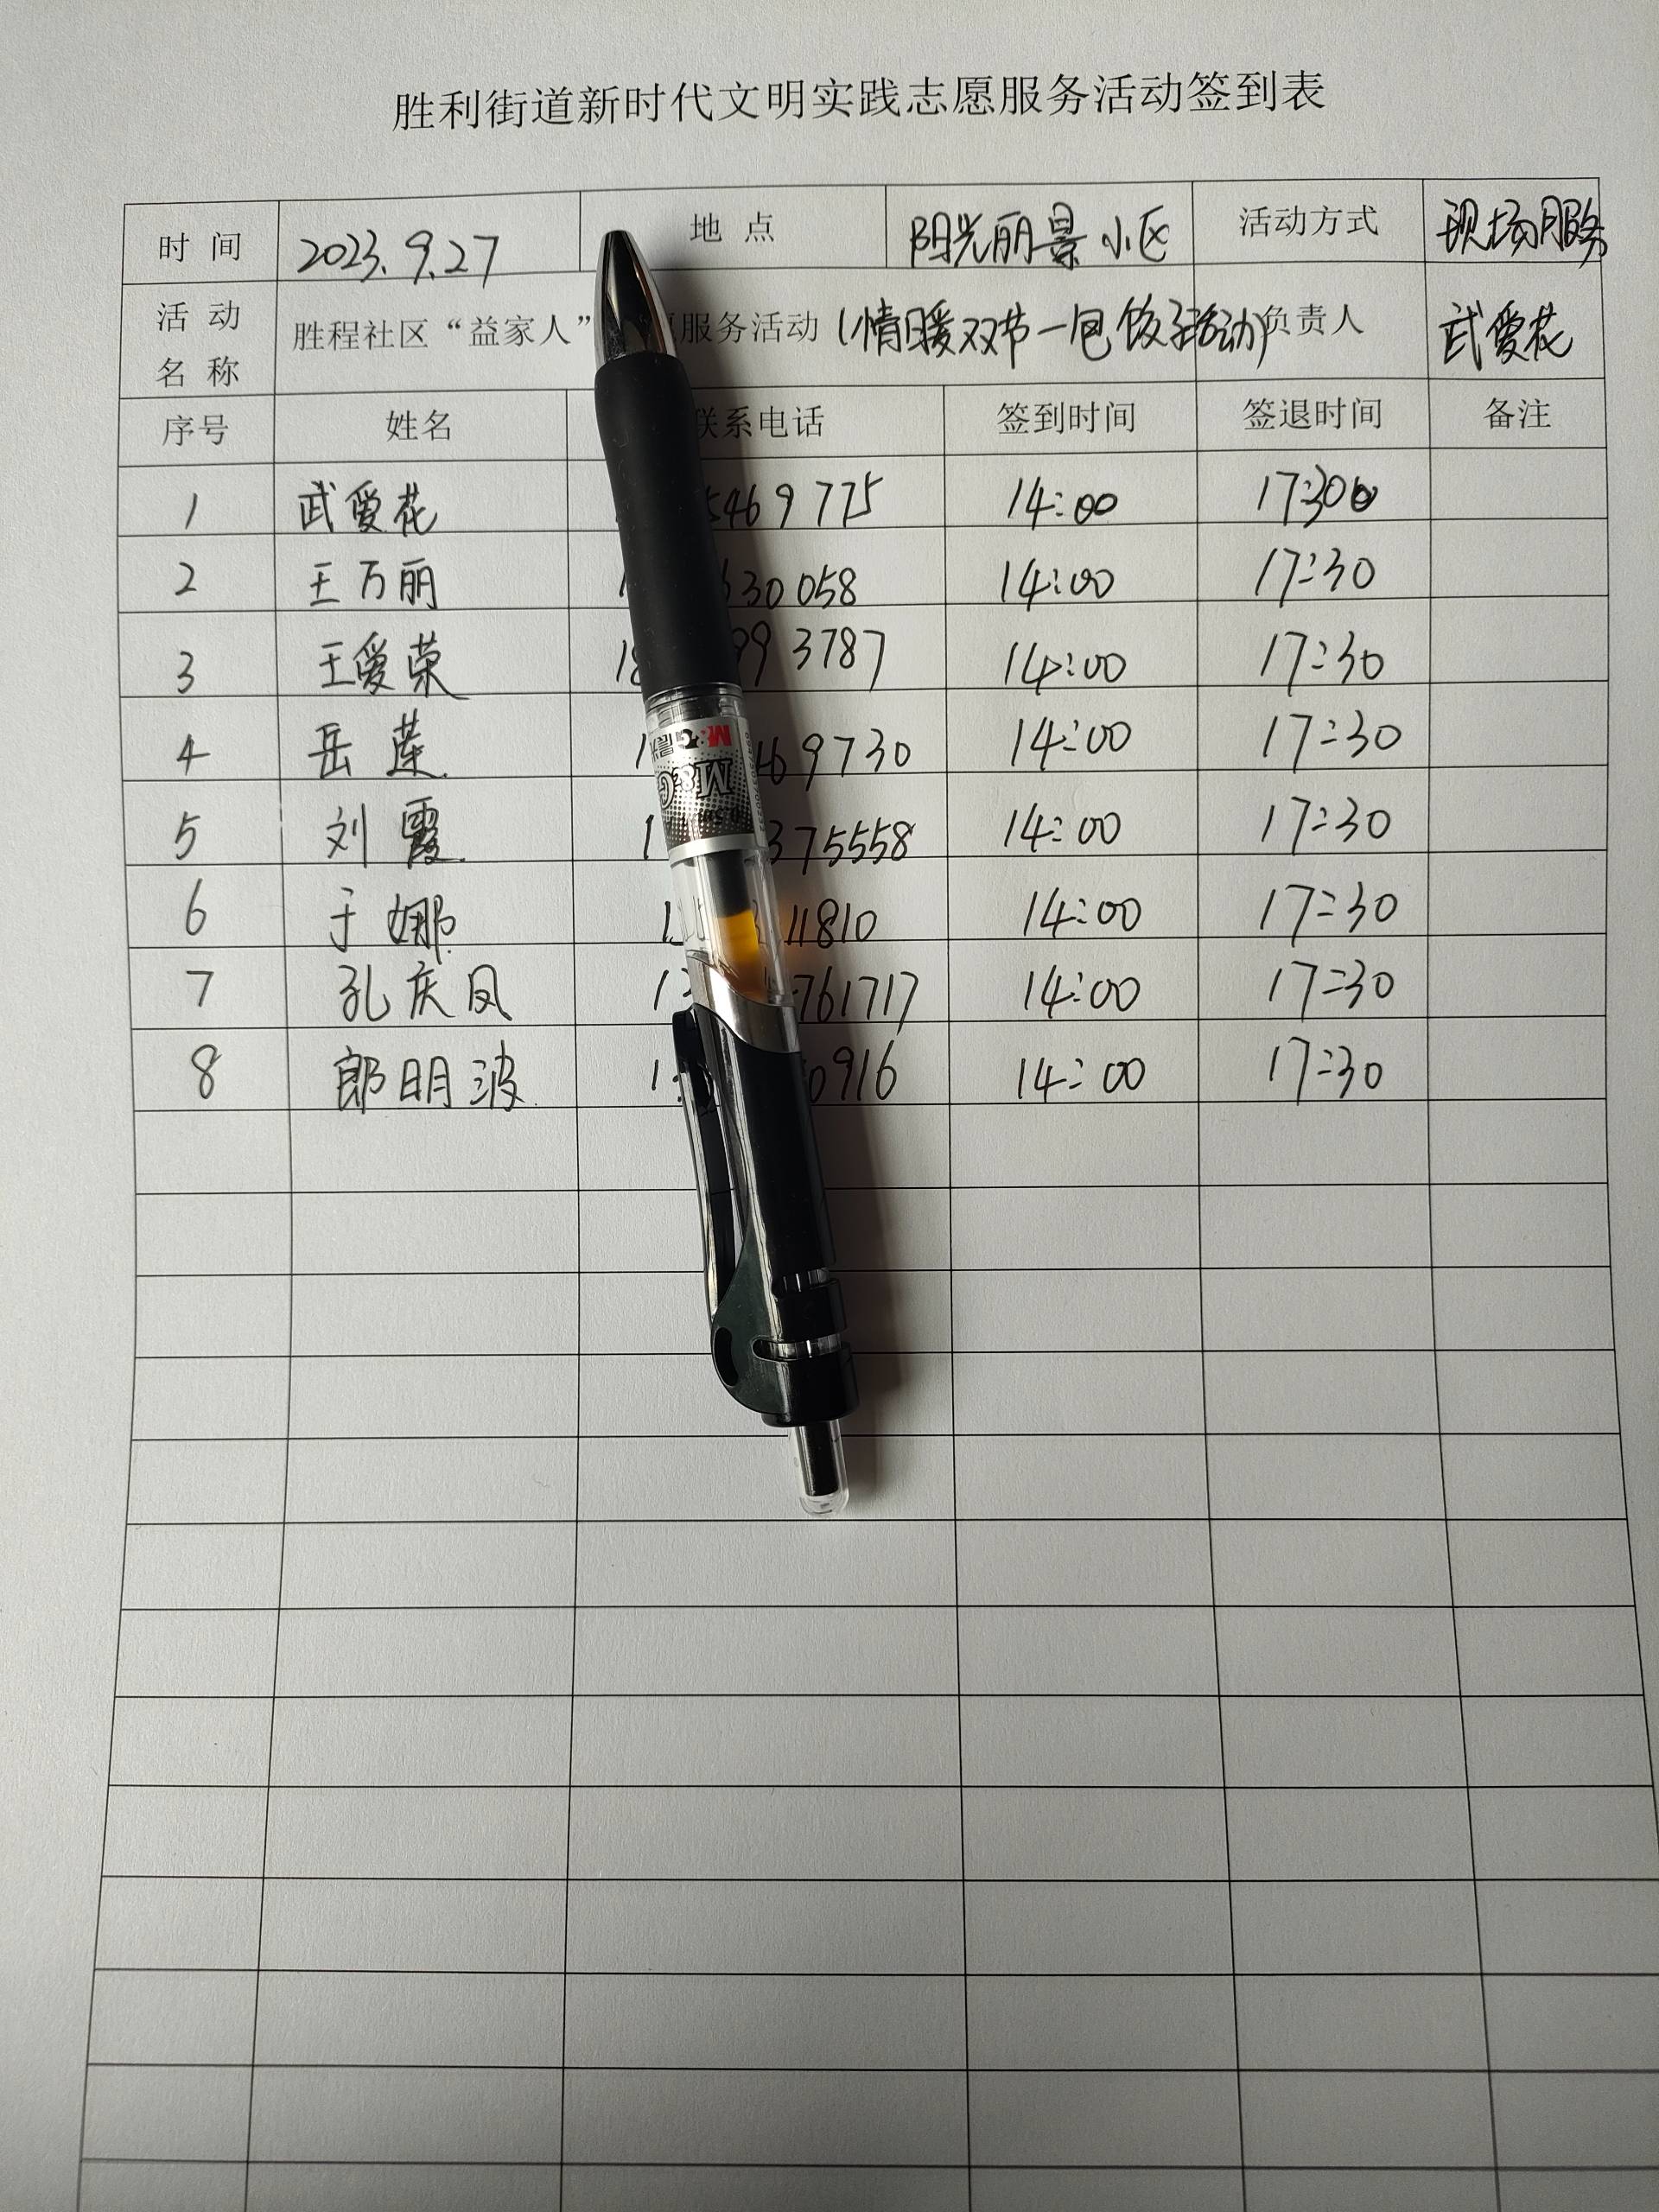 胜利街道新时代文明实践志愿服务活动签到表
时 间 2023.9.27 地 点 阳光丽景小区 活动方式 现场服务
活 动 名 称 胜程社区“益家人” 愿服务活动（情暖双节—包饺子活动） 负责人 武爱花
序号 姓名 联系电话 签到时间 签退时间 备注
1 武爱花 5469775 14:00 17:30
2 王万丽 1 630058 14:00 17:30
3 王爱荣 18 99 3787 14:00 17:30
4 岳莲 1 469730 14:00 17:30
5 刘霞 1 375558 14:00 17:30
6 于娜 1 11810 14:00 17:30
7 孔庆凤 1 761717 14:00 17:30
8 郎明波 1 0916 14:00 17:30
M&G
M&G